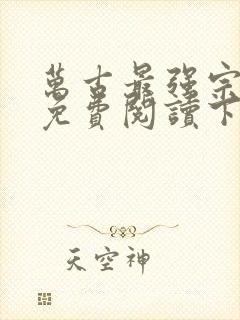 萬古最強宗
免費閱讀下
天空神